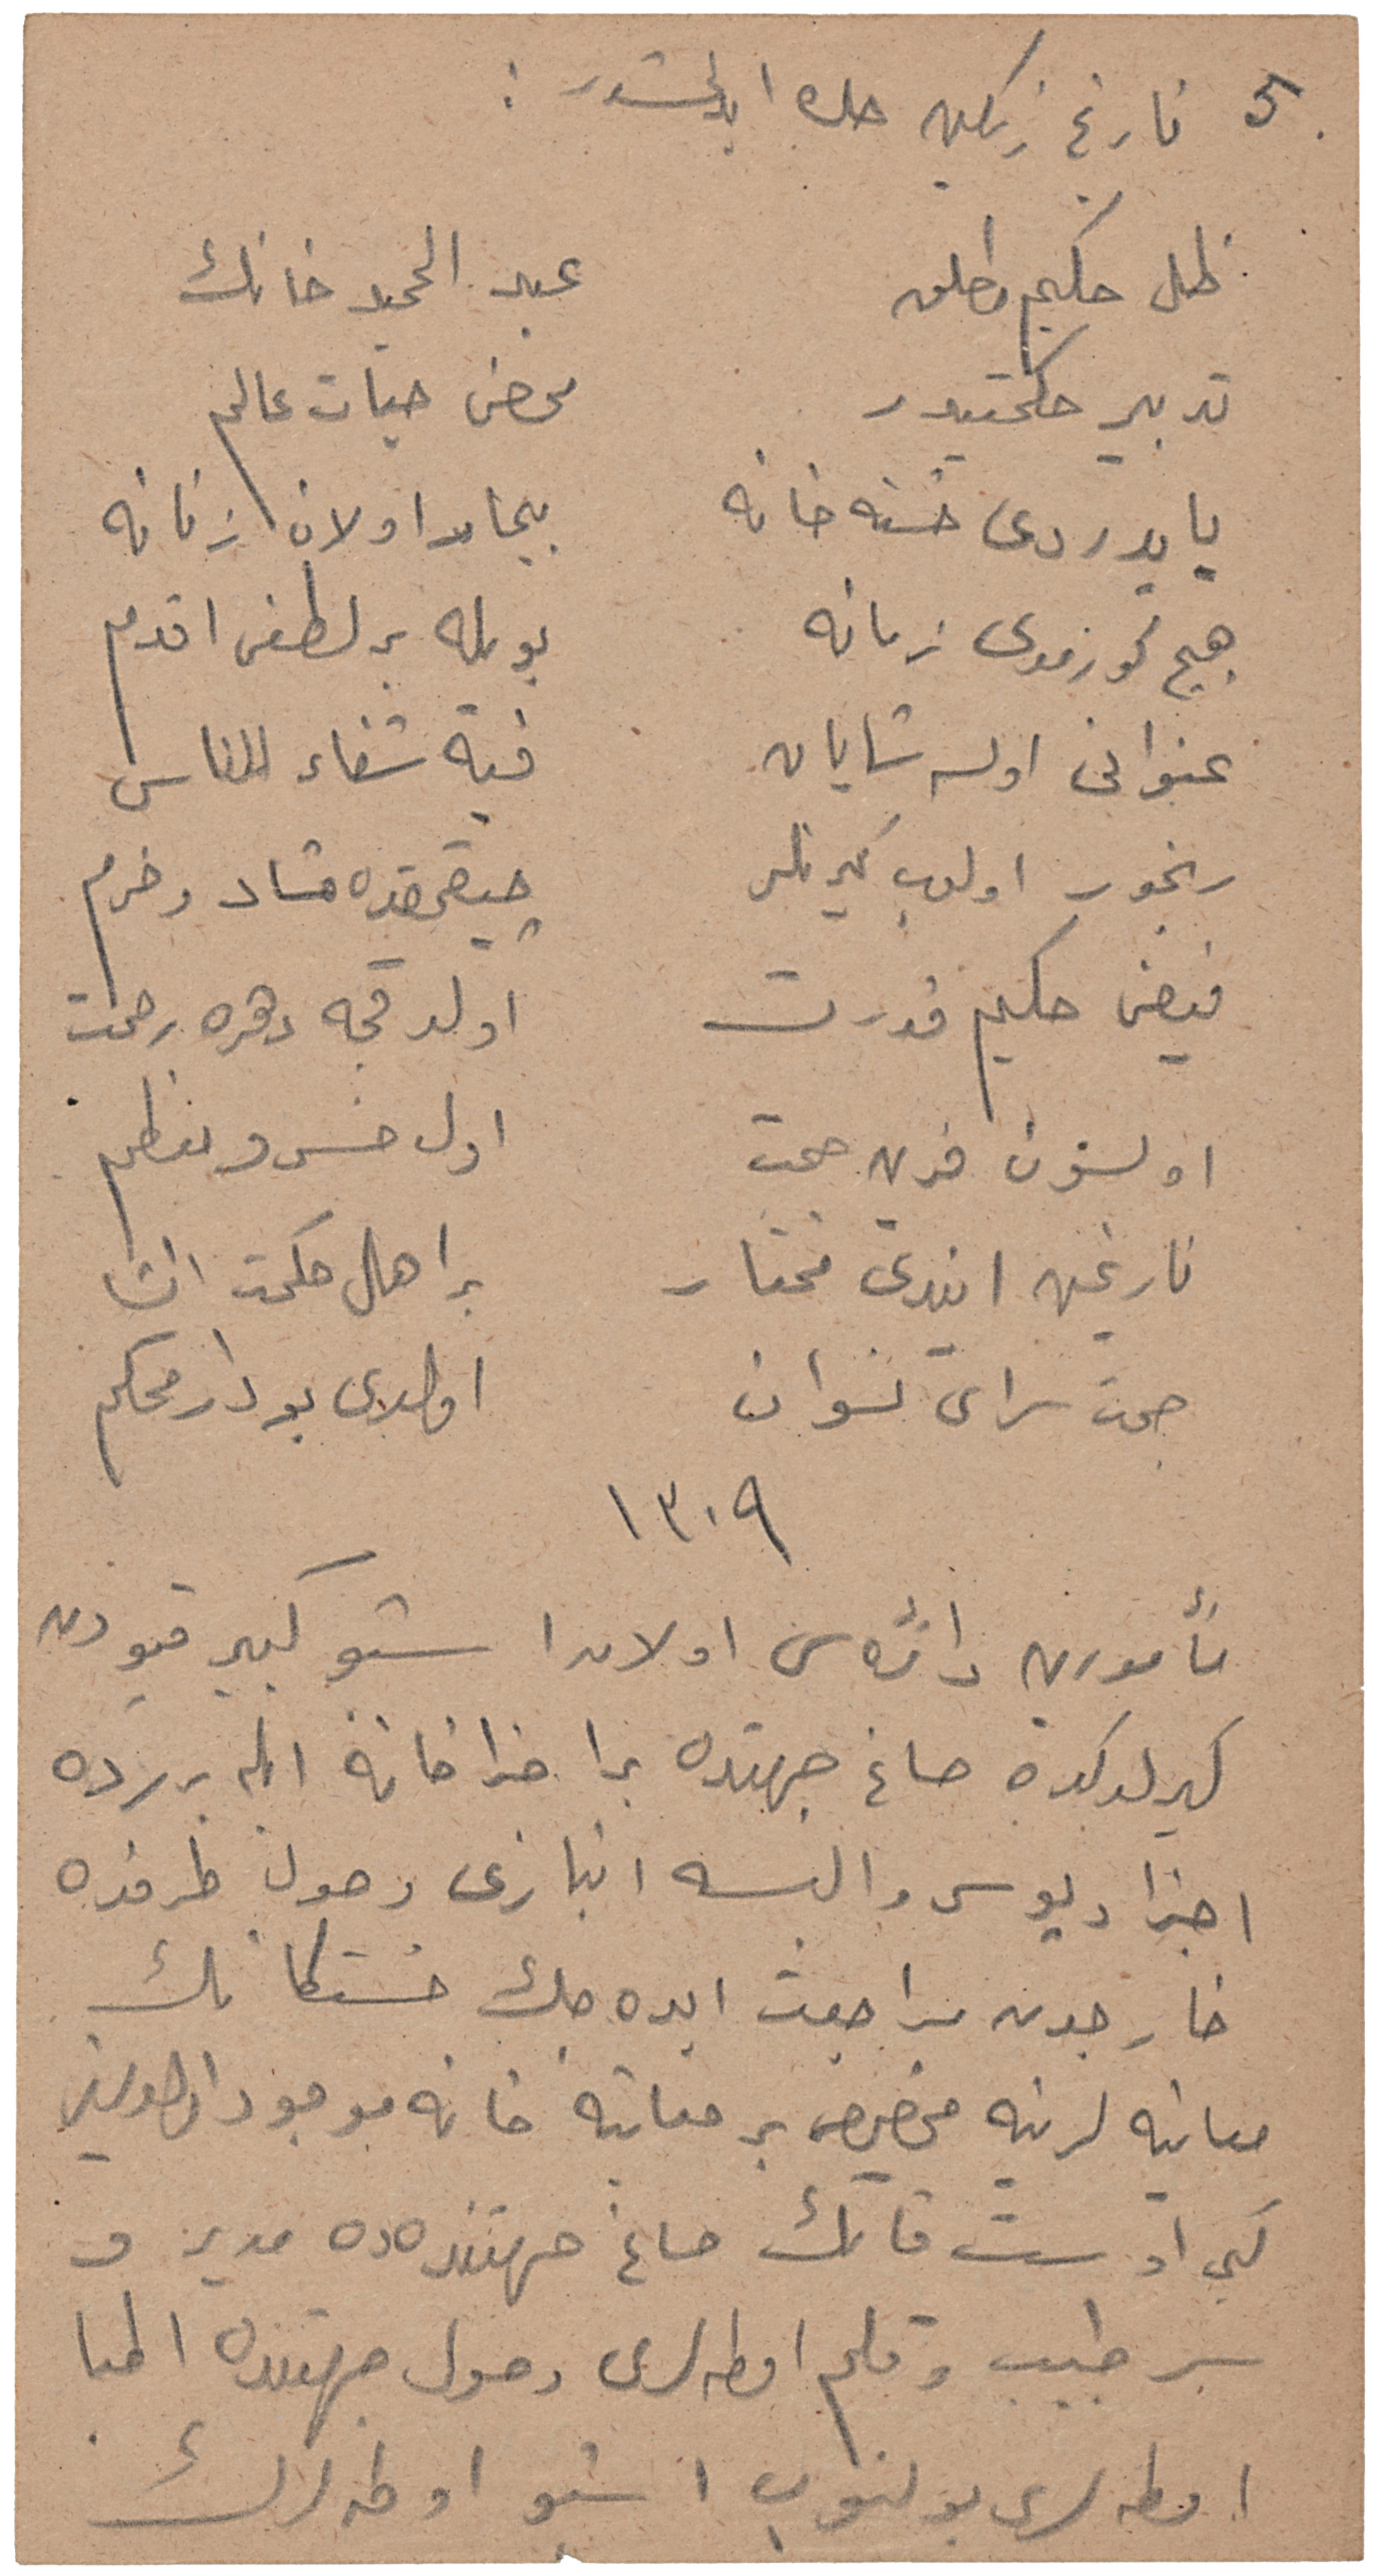 5 تاریخ رنگین حك ایدلمشدر :
ظل حکیم مطلق عبد الحمید خانك
تدبیر حکمتیدر محض حیات عالم
یاپدردی خسته خانه بیچاره اولان زنانه
هیچ کورمدی زمانه بویله بر لطفی اقدم
عنوانی اولسه شایان فیه شفاء للناس
رنجور اولوب کیرنلر چیقمقده شاد و خرم
فیض حکیم قدرت اولدقجه دهره رحمت
اولسون قرین صحت اول خسرو معظم
تاریخن ایتدی مختار بر اهل حکمت انشا
صحت سرای نسوان اولدی بو دار محکم
١٣٠٩
مأمورین دائره سی اولان اشبو کبیر قپودن
کیرلدکده صاغ جهتده بر اجزاخانه ایله بررده
اجزا دپوسی والبسه انباری وصول طرفده
خارجدن مراجعت ایده جك خستکانك
معاینه لرینه مخصوص بر معاینه خانه موجود اولدیغی
کبی اوست قاتك صاغ جهتنده ده مدیر و
سرطبیب و قلم اوطه لری وصول جهتنده اطبا
اوطه لری بولنوب اشبو اوطه لرك